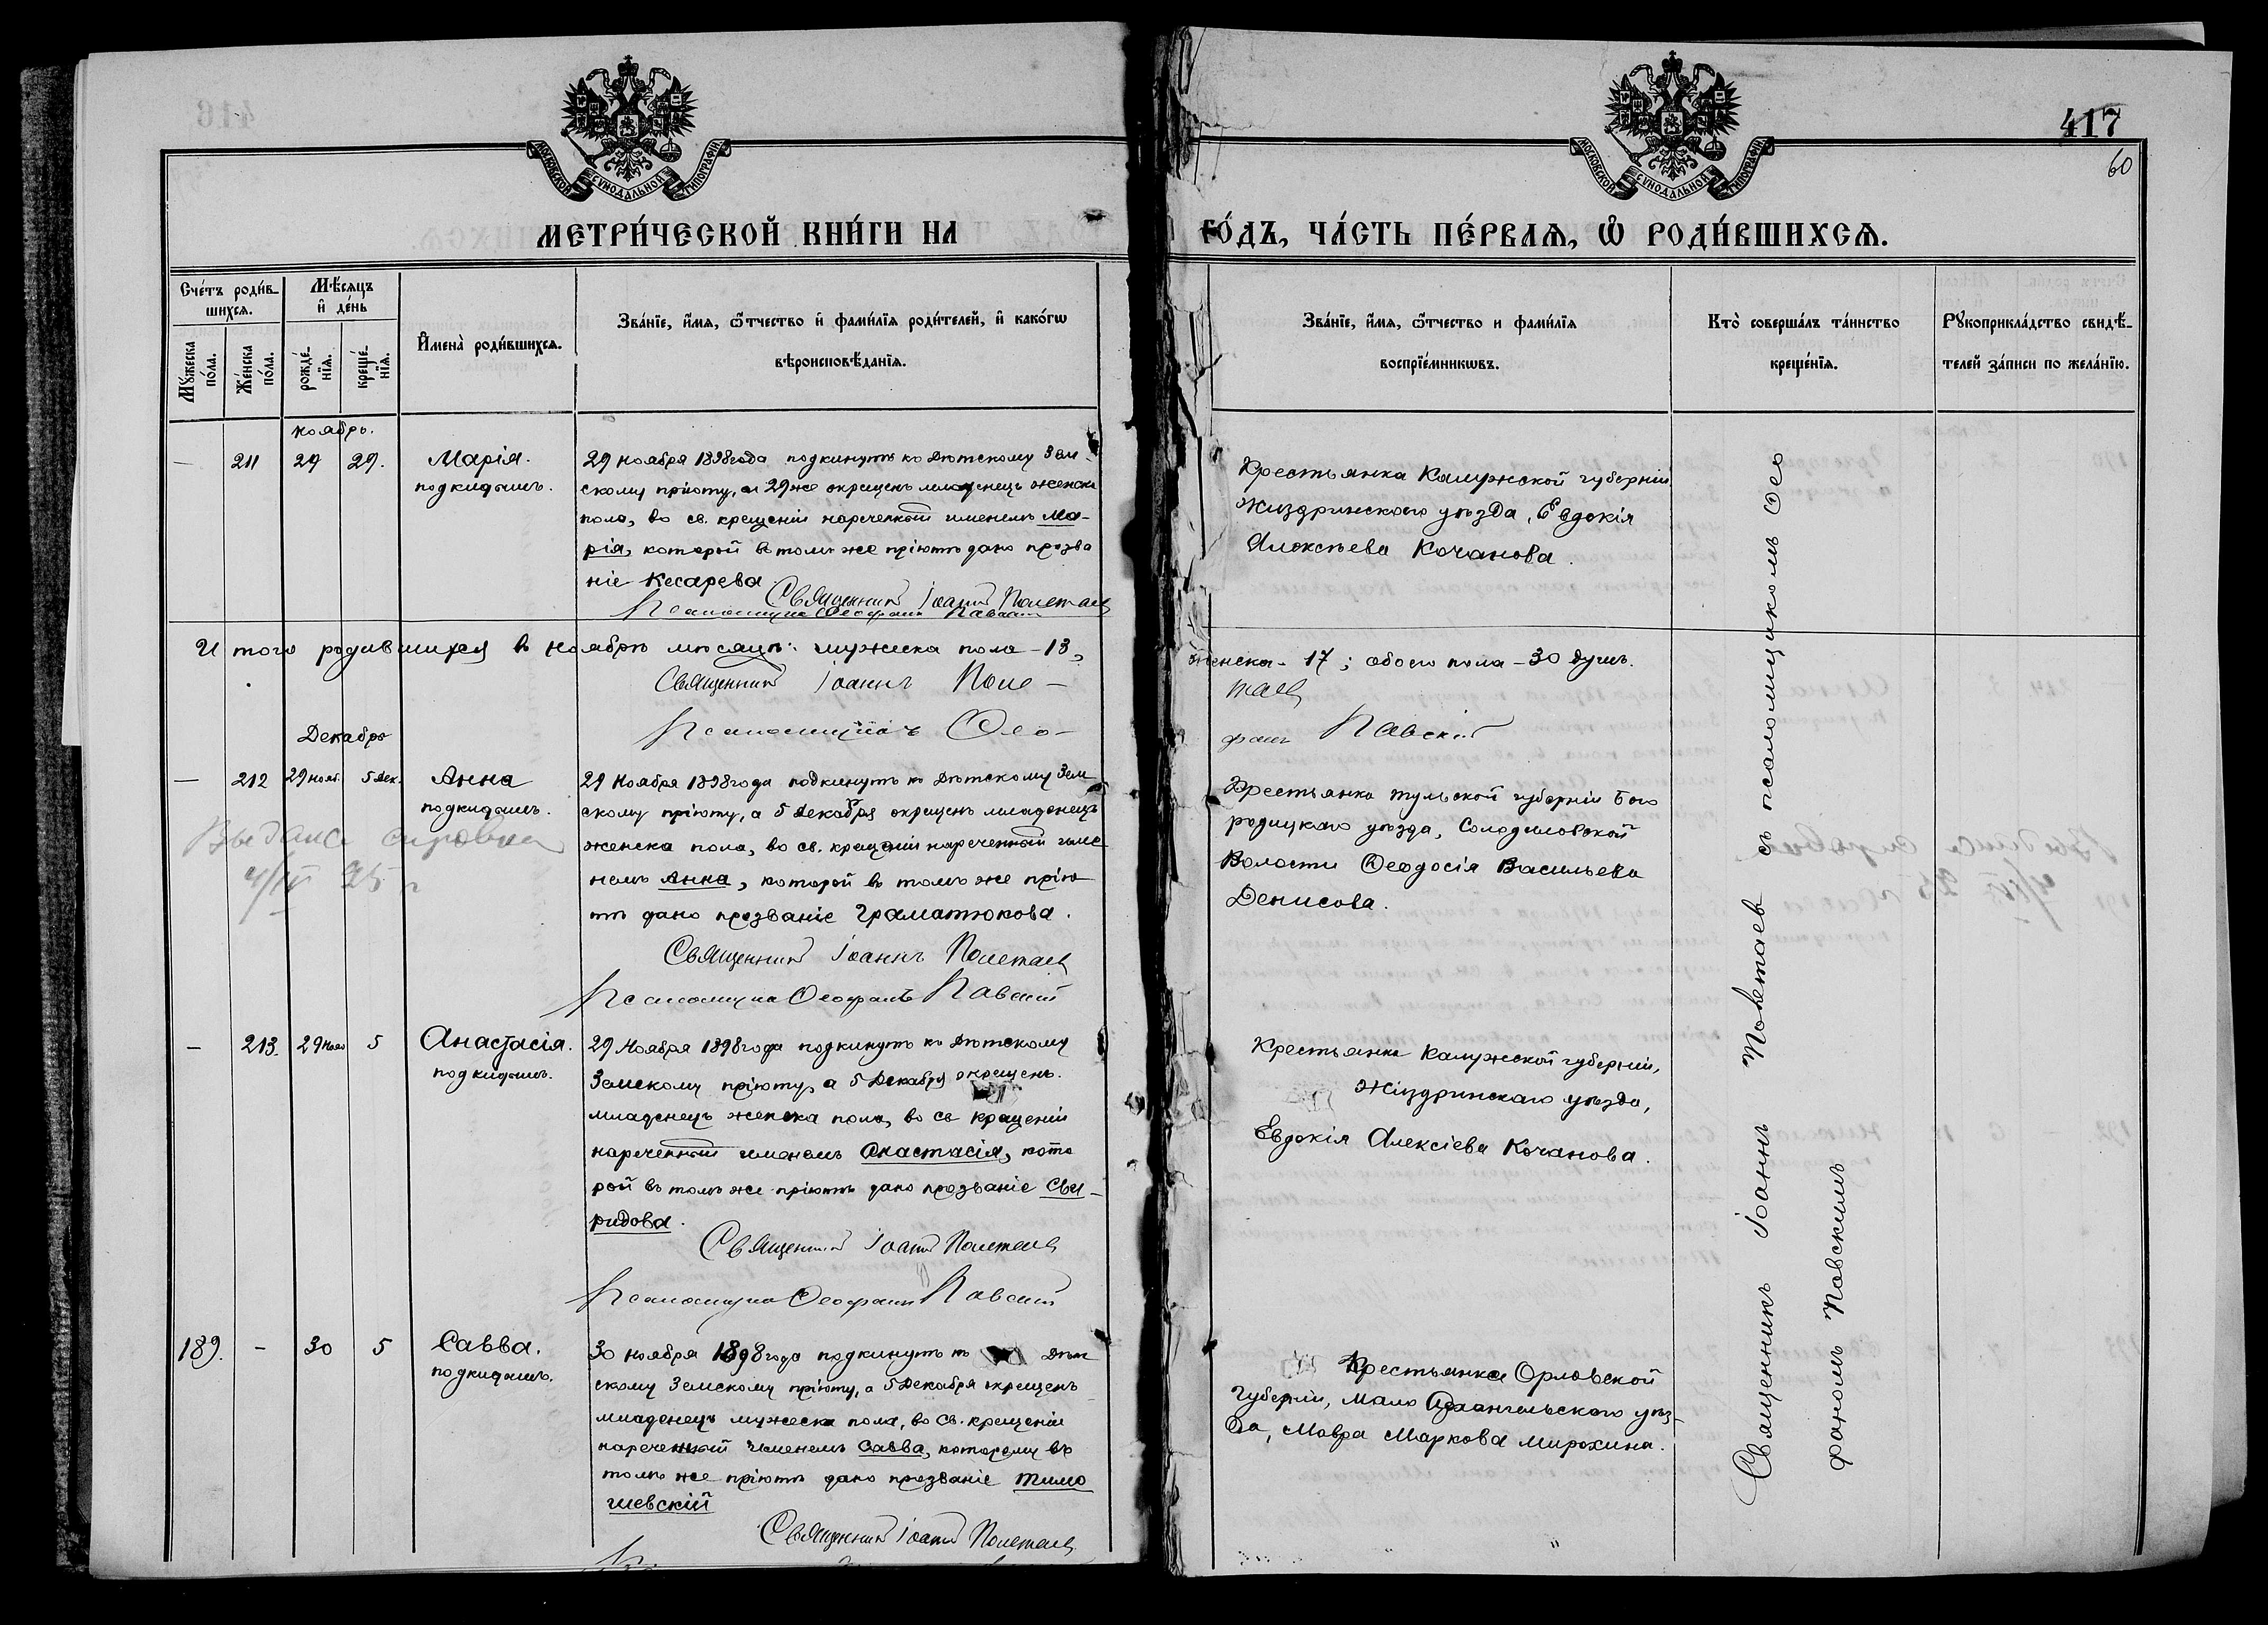 417
60
МОСКОВСКОЙ СѴНОДАЛЬНОЙ ТИПОГРАФІИ
МОСКОВСКОЙ СѴНОДАЛЬНОЙ ТИПОГРАФІИ
МЕТРИ́ЧЕСКОЙ КНИ́ГИ НА
ГО́ДЪ, ЧА́СТЬ ПЕ́РВАѦ, Ѡ҆ РОДИ́ВШИХСѦ.
Сче́тъ роди́в-
шихсѧ.
Мꙋ́жеска по́ла.
Же́нска по́ла.
Мѣ́сѧцъ
и҆ де́нь
рожде́-
нїѧ.
креще́-
нїѧ.
И҆мена̀ роди́вшихсѧ.
Зва́нїе, и҆́мѧ, ѻ҆́тчество и҆ фами́лїѧ роди́телей, и҆ како́гѡ
вѣроисповѣ́данїѧ.
Зва́нїе, и҆́мѧ, ѻ҆́тчество и фами́лїѧ
воспрїе́мникѡвъ.
Кто̀ соверша́лъ та́инство
креще́нїѧ.
Рꙋкоприкла́дство свидѣ́-
телей за́писи по жела́нїю.
ноябрь.
— 211 29 29. Марія.
подкидышъ.
29 ноября 1898 года подкинутъ къ Дѣтскому Зем
скому пріюту, а 29 же окрещенъ младенецъ женска
пола, во св. крещеніи нареченный именемъ Ма-
рія, которой въ томъ же пріютѣ дано прозва
ніе Кесарева
Священникъ Іоаннъ Полетаев
Псаломщикъ Ѳеофанъ Павскій
Крестьянка Калужской губерніи
Жиздринскаго уѣзда, Евдокія
Алексѣева Кочанова.
Итого родившихся въ ноябрѣ мѣсяцѣ: мужеска пола – 13,
женска – 17; обоего пола – 30 душъ.
Священникъ Іоаннъ Поле-
таев
Псаломщикъ Ѳео-
фанъ Павскій
Декабрь
— 212 29 нояб. 5 Дек. Анна
подкидышъ.
Выдана справка
4/IV 25 г
29 Ноября 1898 года подкинутъ къ Дѣтскому Зем
скому пріюту, а 5 Декабря окрещенъ младенецъ
женска пола, во св. крещеніи нареченный име
немъ Анна, которой въ томъ же прію
тѣ дано прозваніе Граматюкова.
Священникъ Іоаннъ Полетаев
Псаломщикъ Ѳеофанъ Павскій
Крестьянка Тульской губерніи Бого
родицкаго уѣзда, Солодиловской
Волости Ѳеодосія Васильева
Денисова.
— 213. 29 нояб 5 Анастасія.
подкидышъ.
29 Ноября 1898 года подкинутъ къ Дѣтскому
Земскому пріюту, а 5 Декабря окрещенъ.
младенецъ женска пола, во св крещеніи
нареченный именемъ Анастасія, кото
рой въ томъ же пріютѣ дано прозваніе Сви-
ридова.
Священникъ Іоаннъ Полетаев
Псаломщикъ Ѳеофанъ Павскій
Крестьянка Калужской губерніи,
Жиздринскаго уѣзда,
Евдокія Алексіева Кочанова.
189. – 30 5 Савва.
подкидышъ.
30 ноября 1898 года подкинутъ къ Дѣт
скому Земскому пріюту, а 5 Декабря окрещенъ
младенецъ мужеска пола, во св. крещеніи
нареченный именемъ Савва, которому въ
томъ же пріютѣ дано прозваніе Тимо
шевскій
Священникъ Іоаннъ Полетаев
Крестьянка Орловской
Губерніи, Мало Архангельскаго уѣз-
да, Мавра Маркова Мирохина.
Священникъ Іоаннъ Полетаев съ псаломщикомъ Ѳео
фаномъ Павскимъ